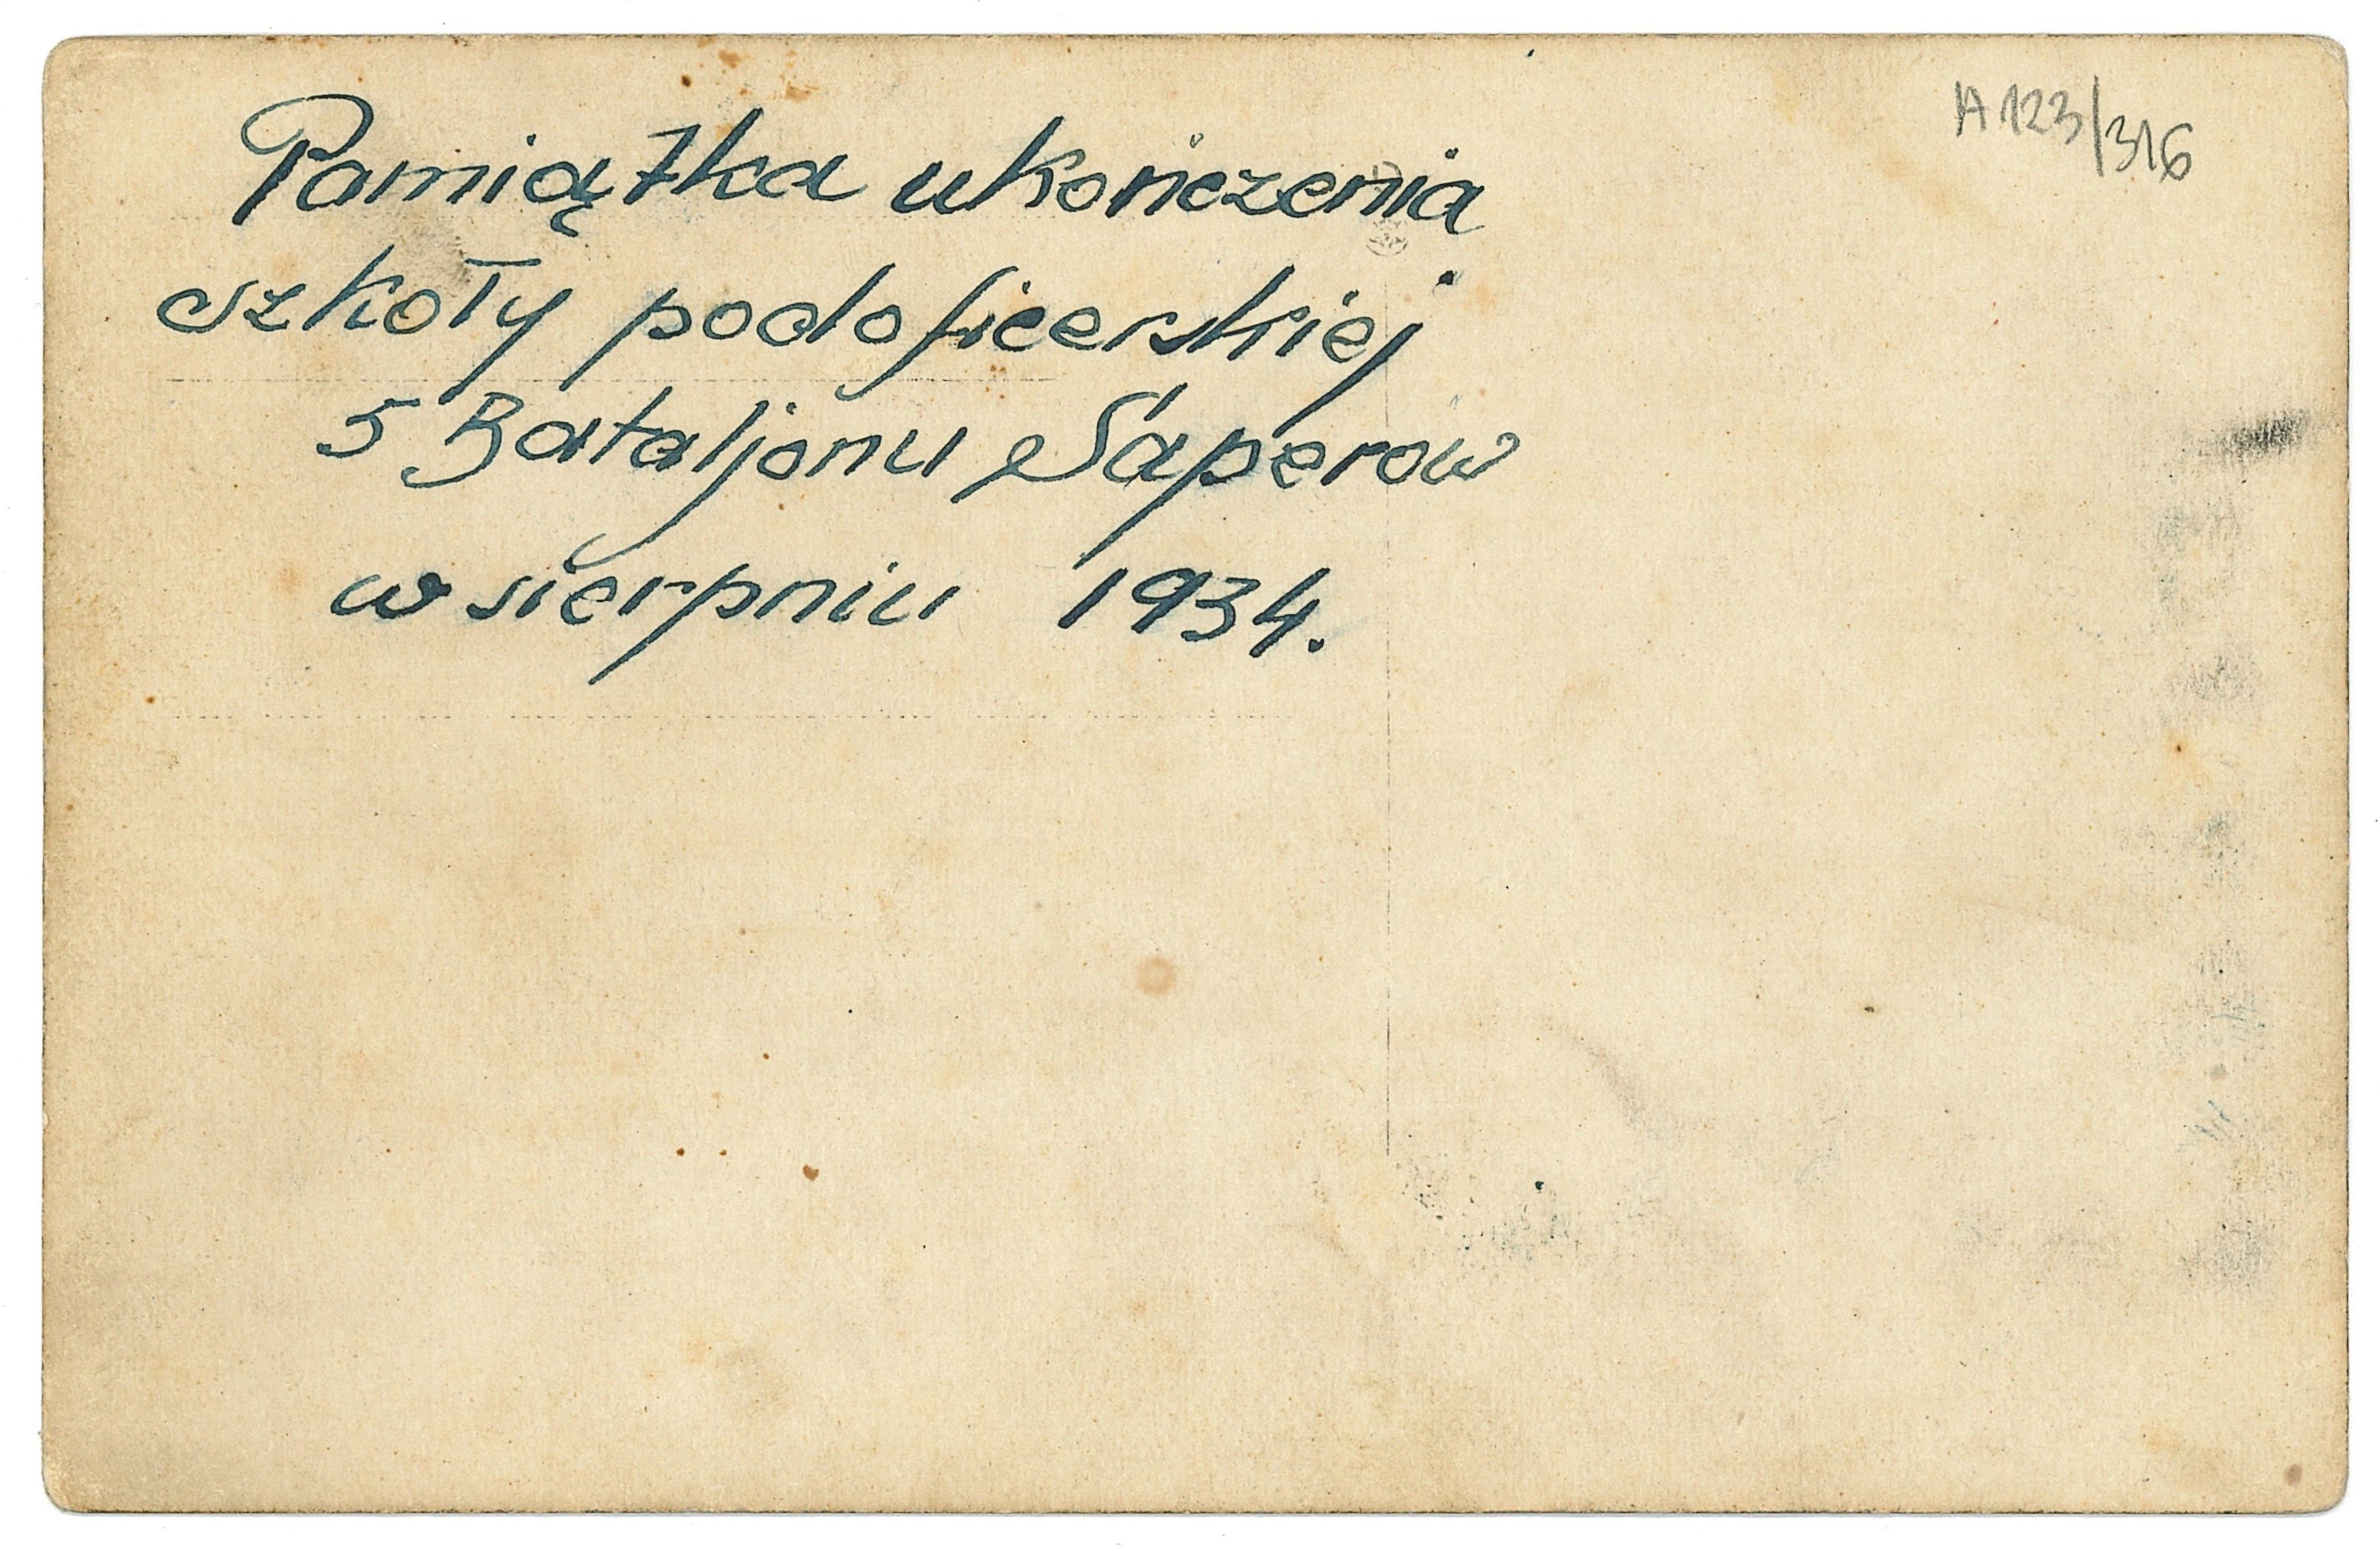 A123/316
Pamiątka ukończenia
szkoły podoficerskiej
5 Bataljonu Saperow
w sierpniu 1934.